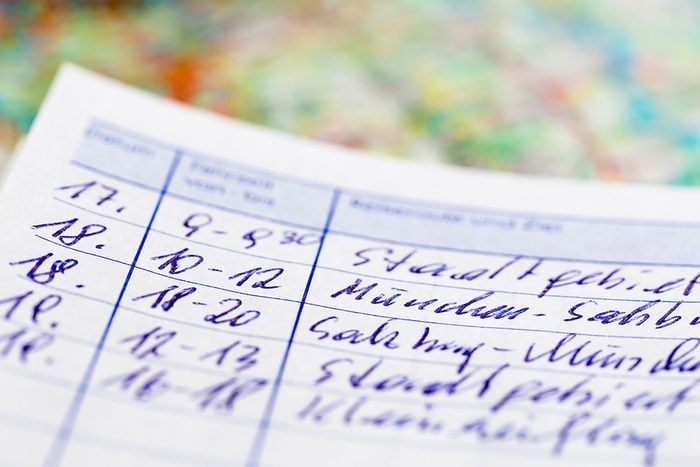 Datum Fahrzeit von - bis Reiseroute und Ziel
17. 9 - 9 30 Stadtgebiet
18. 10 - 12 München - Salzb
18. 18 - 20 Salzburg - Münch
19. 12 - 13 Stadtgebiet
19. 16 - 18